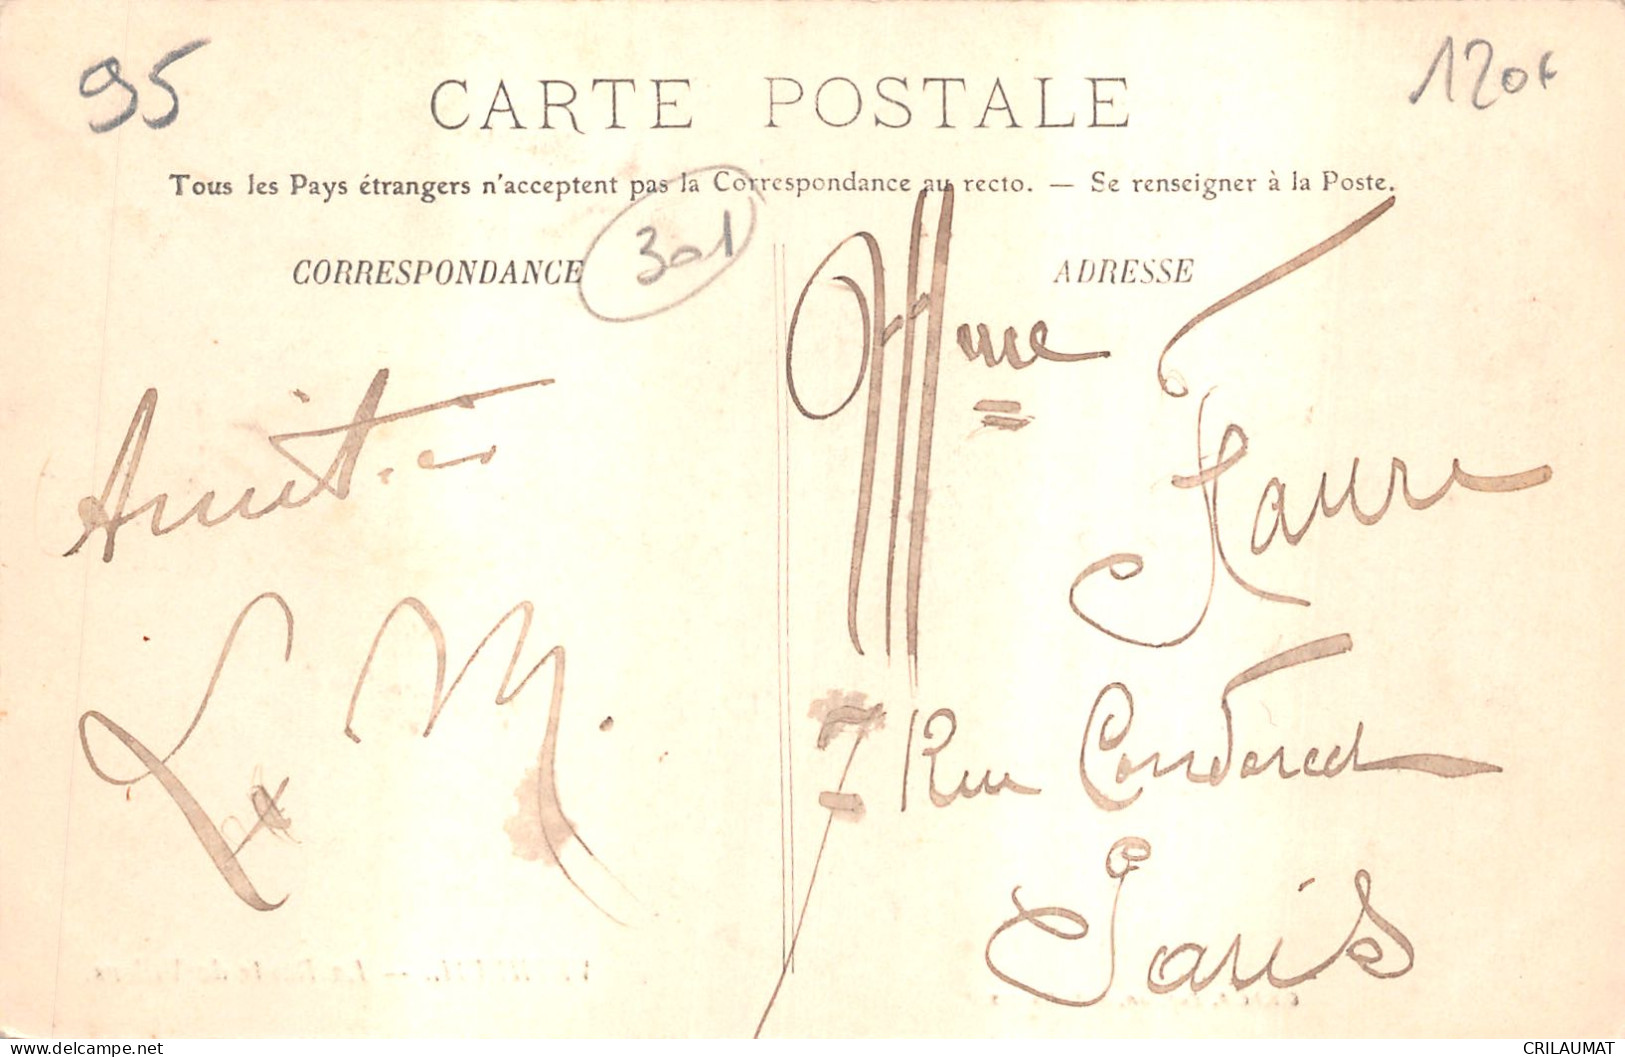 95
120f
CARTE POSTALE
Tous les Pays étrangers n'acceptent pas la Correspondance au recto. — Se renseigner à la Poste.
CORRESPONDANCE
301
ADRESSE
Amitiés
L M.
Mme
Faure
7 Rue Condorcet
Paris
CRILAUMAT